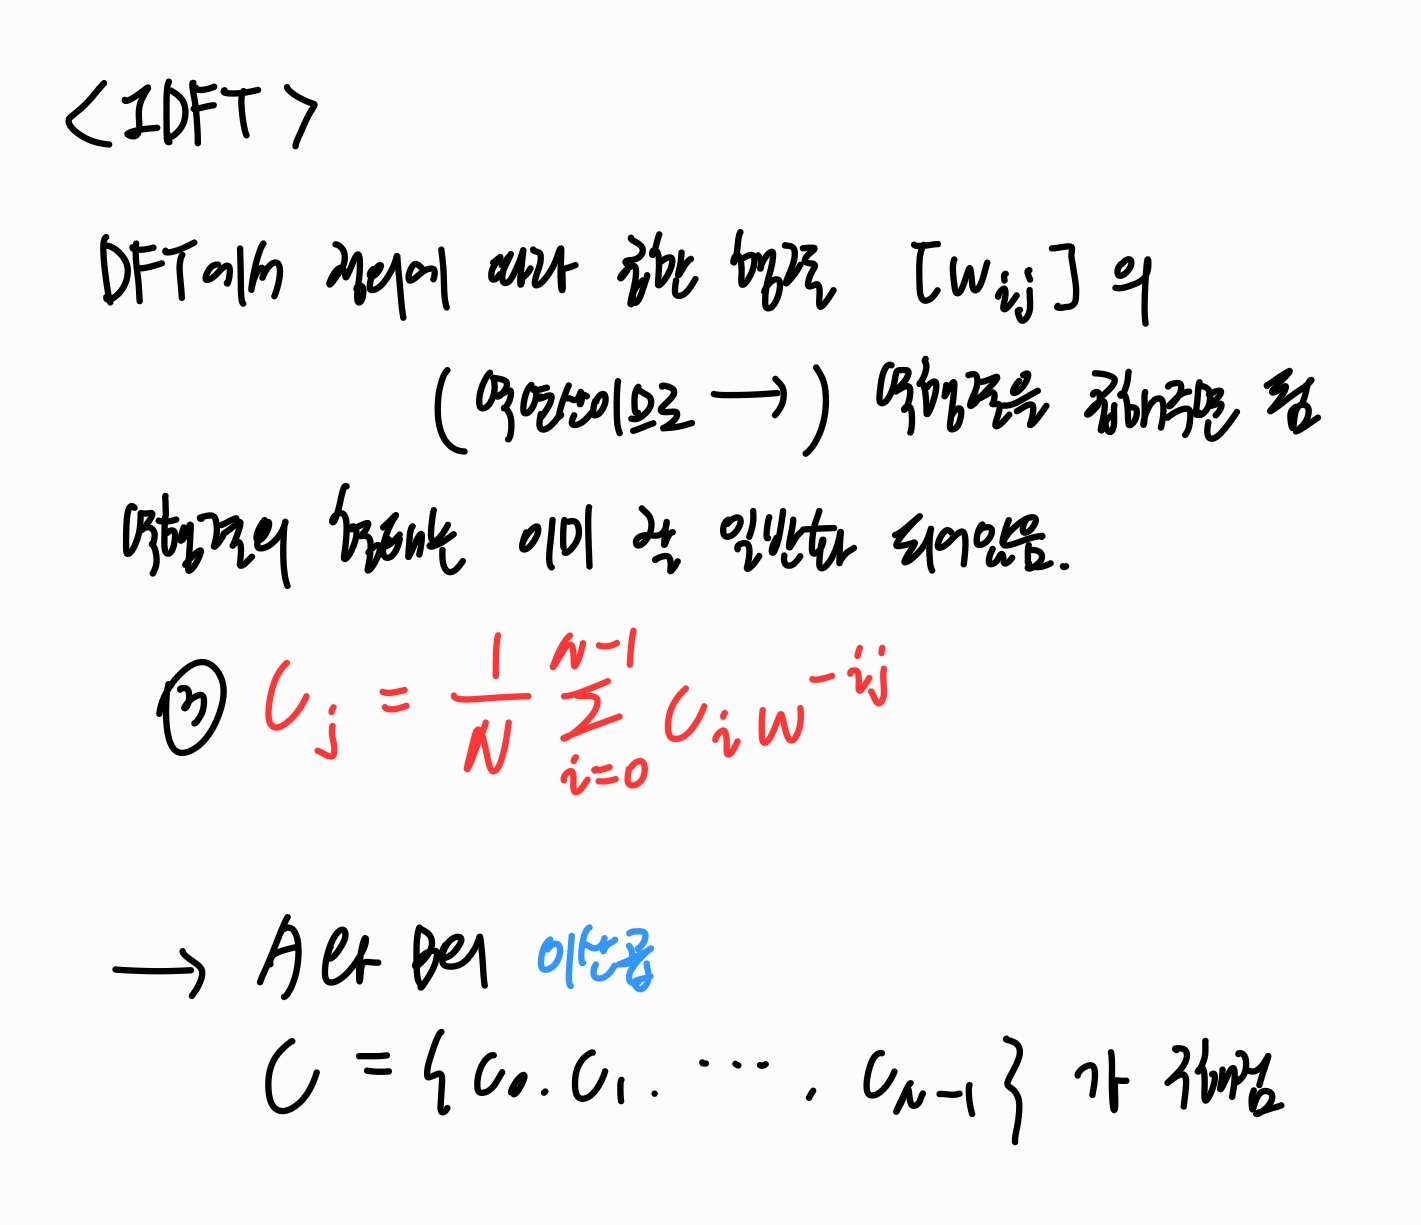 <IDFT>
DFT에서 정의에 따라 곱한 행렬 [w_ij]의
(역연산이므로 →) 역행렬을 곱해주면 됨
역행렬의 형태는 이미 잘 일반화 되어있음.
③ C_j = 1/N Σ_{i=0}^{N-1} C_i w^{-ij}
→ A와 B의 이산곱
C = {C_0. C_1. ⋯, C_{N-1}}가 구해짐